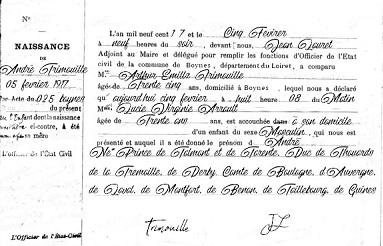 N°
NAISSANCE
DE
André Trimouille
05 février 1917
Par Acte du 025 boynes
du présent
de l'Enfant dont la naissance
ci-contre, à été
mère
L'Officier de l'État Civil
L'Officier de l'État-Civil
L'an mil neuf cent 17 et le Cinq Fevrier
à neuf heures du soir, devant nous, Jean Louret
Adjoint au Maire et délégué pour remplir les fonctions d'Officier de l'Etat
civil de la commune de Boynes, département du Loiret, a comparu
M. Arthur Emille Trimouille
âgés de Trente cinq ans, domicilié à Boynes, lequel nous a déclaré
qu'aujourd'hui cinq fevrier à huit heure 08 du Matin
M Lucie Virginie Arrault
âgée de Trente ans, est accouchée dans à son domicile
d'un enfant du sexe Masculin, qui nous est
présenté et auquel il a été donné le prénom d André
Ne Prince de Talmont et de Tarente, Duc de Thouards
de la Tremoille, de Derby, Comte de Boulogne, d'Auvergne,
de Laval, de Montfort, de Benon, de Taillebourg, de Guines
Trimouille JL